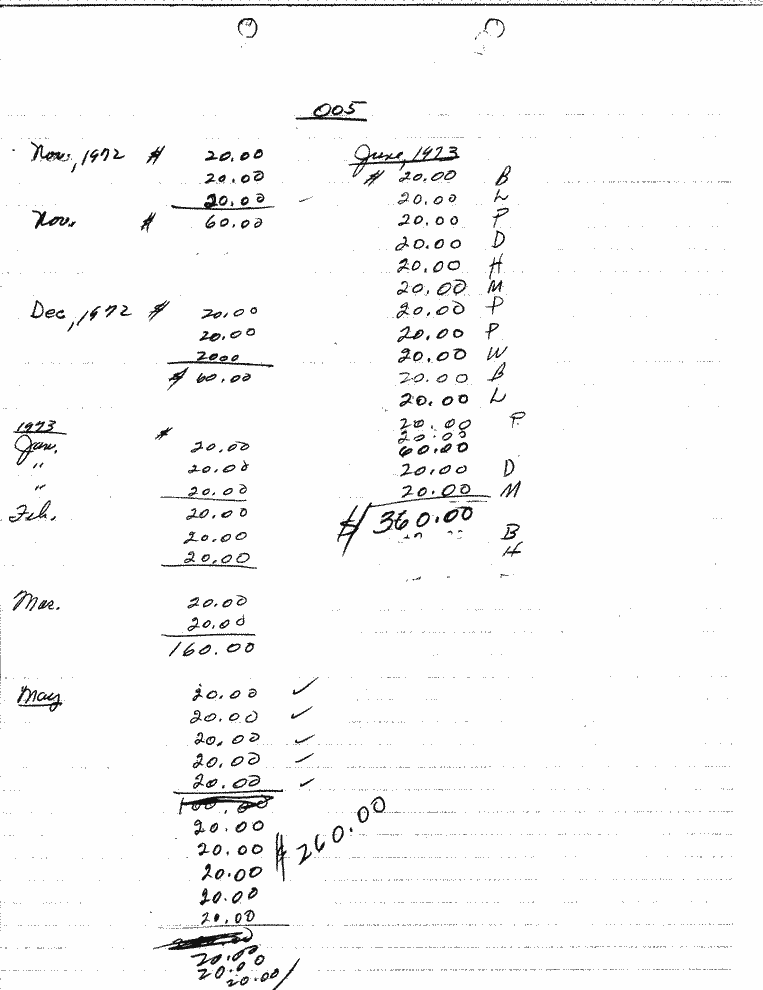 005
Nov., 1972 $ 20.00
20.00
20.00
Nov. $ 60.00
Dec, 1972 $ 20.00
20.00
2000
$ 60.00
1973
Jan. $ 20.00
" 20.00
" 20.00
Feb. 20.00
20.00
20.00
Mar. 20.00
20.00
160.00
May 20.00 ✓
20.00 ✓
20.00 ✓
20.00 ✓
20.00 ✓
100.00
20.00
20.00
20.00
20.00
20.00
$ 260.00
20.00
20.00
20.00
June, 1973
$ 20.00 B
20.00 L
20.00 P
20.00 D
20.00 H
20.00 M
20.00 P
20.00 P
20.00 W
20.00 B
20.00 L
20.00 P
20.00
60.00
20.00 D
20.00 M
$ 360.00
B
H